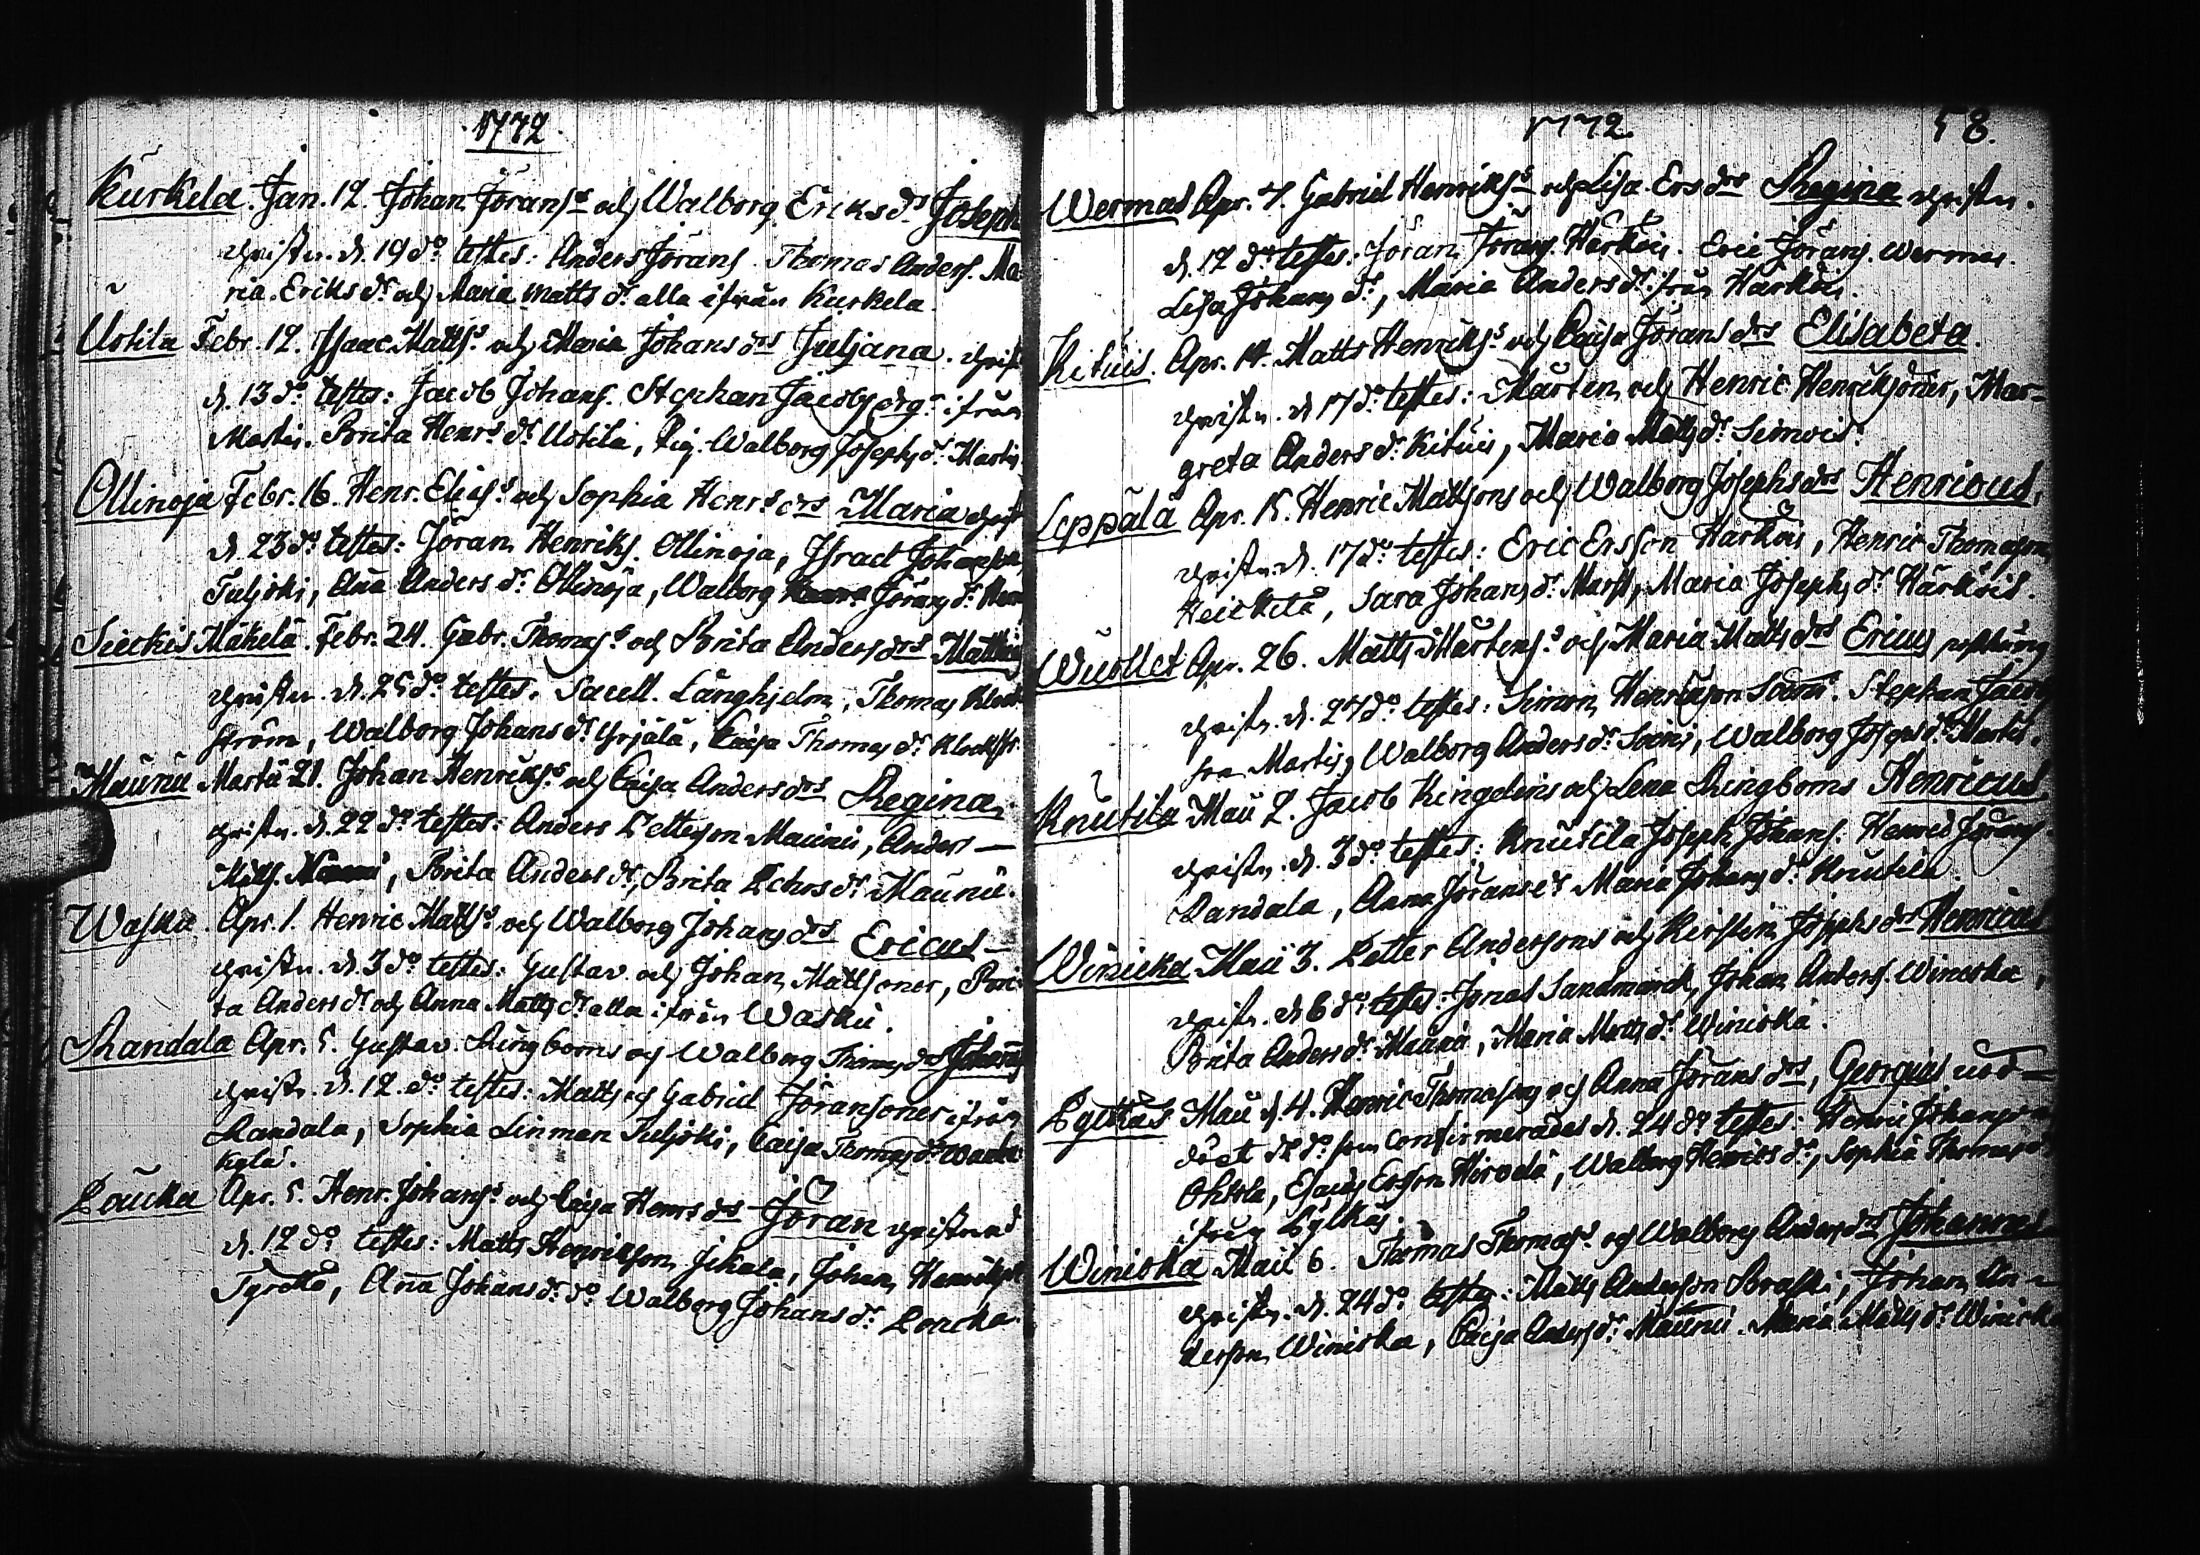 1772.
Kurkela. Jan. 12. Johan Jöranss. och Walborg Eriks dr Joseph
christn. d. 19 do testes: Anders Jörans. Thomas Anders. Ma-
ria Eriks dr och Maria Matts dr alla ifrån Kurkela.
Uotila Febr. 12. Isaac Matts. och Maria Johans drs Juljana. christ
d. 13 do testes: Jacob Johans. Stephan Jacobs drg. ifrån
Martis. Brita Henrs dr Uotila, Pig. Walborg Josephs dr Martis
Ollinoja Febr. 16. Henr. Elias. och Sophia Henrs drs Maria christ
d. 23 do testes: Jöran Henriks. Ollinoja, Israel Johansson
Tuljoki, Ana Anders dr Ollinoja, Walborg Jörans dr
Sieckis Mäkelä. Febr. 24. Gabr. Thomas. och Brita Anders drs Matthias
christn. d. 25 do testes. Sacell. Långhjelm, Thomas Klock-
ström, Walborg Johans dr Yrjälä, Caisa Thomas dr Klockstr.
Maunu Martii 21. Johan Henrikss. och Caisa Anders drs Regina,
christn. d. 22 do testes: Anders Pettersson Maunu, Anders
Mills. , Brita Anders dr, Brita Pehrs dr Maunu.
Wasku. Apr. 1. Henric Matts. och Walborg Johans drs Ericus
christn. d. 3 do testes: Gustav och Johan Mattssoner, Bri-
ta Anders dr och Anna Matts dr alla ifrån Wasku.
Randala Apr. 5. Gustav Ringboms och Walborg Thomas drs
christn. d. 12. do testes: Matts och Gabriel Jöranssoner ifrån
Randala, Sophia Linman Tuljoki, Caisa Thomas dr
kylä.
Loucka Apr. 5. Henr. Johans. och Caisa Henrs drs Jöran christnad
d. 12 do testes: Matts Henriksson Jikala, Johan Henriksson
Tyrckö, Ana Johans dr do Walborg Johans dr Loucka.
1772. 58.
Wermas Apr. 7. Gabriel Henrikss. och Lisa Ers drs Regina christn.
d. 12 do testes: Jöran Jörans. Härköis. Eric Jörans. Wermas.
Lisa Johans dr, Maria Anders dr från Härköis.
Kituis. Apr. 14. Matts Henrikss. och Caisa Jörans drs Elisabeta.
christn. d. 17 do testes: Mårten och Henric Henrikssöner, Mar-
greta Anders dr Kituis, Maria Matts dr Simois.
Leppälä Apr. 15. Henric Mattssons och Walborg Josephs drs Henricus,
christn. d. 17 do testes: Eric Ersson Härköis, Henric Thomasson
Heickilä, Sara Johans dr , Maria Josephs dr Härköis.
Wuollet Apr. 26. Matts Mårtens. och Maria Matts drs Ericus
christn. d. 27 do testes: Simon Henriksson Soini. Stephan Jacobs
fr. Martis, Walborg Anders dr Soini, Walborg Josephs dr Martis.
Knutila Maii 2. Jacob Kingelins och Lena Ringboms Henricus.
christn. d. 3 do testes: Knutila Joseph Johans. Henric Jörans
Randala, Anna Jörans dr Maria Johans dr Knutila.
Winicka Maii 3. Petter Anderssons och Kirstin Josephs drs Henricus
christn. d. 6 do testes: Jonas Sandmarck, Johan Anders. Winicka,
Brita Anders dr Maunu, Maria Matts dr Winicka.
Pylkäs Maii d. 4. Henric Thomassons och Anna Jörans drs, Georgius nöd-
döpt d. do som confirmerades d. 24 do testes: Henric Johansson
Ohtola, Esaias Ersson Hirvelä, Walborg Henriks dr, Sophia Thomas dr
ifrån Pylkäs.
Winicka Maii 6. Thomas Thomass. och Walborg Anders drs Johannes
christn. d. 24 do testes: Matts Andersson Braski, Johan An-
dersson Winicka, Caisa Anders dr Maunu. Maria Matts dr Winicka